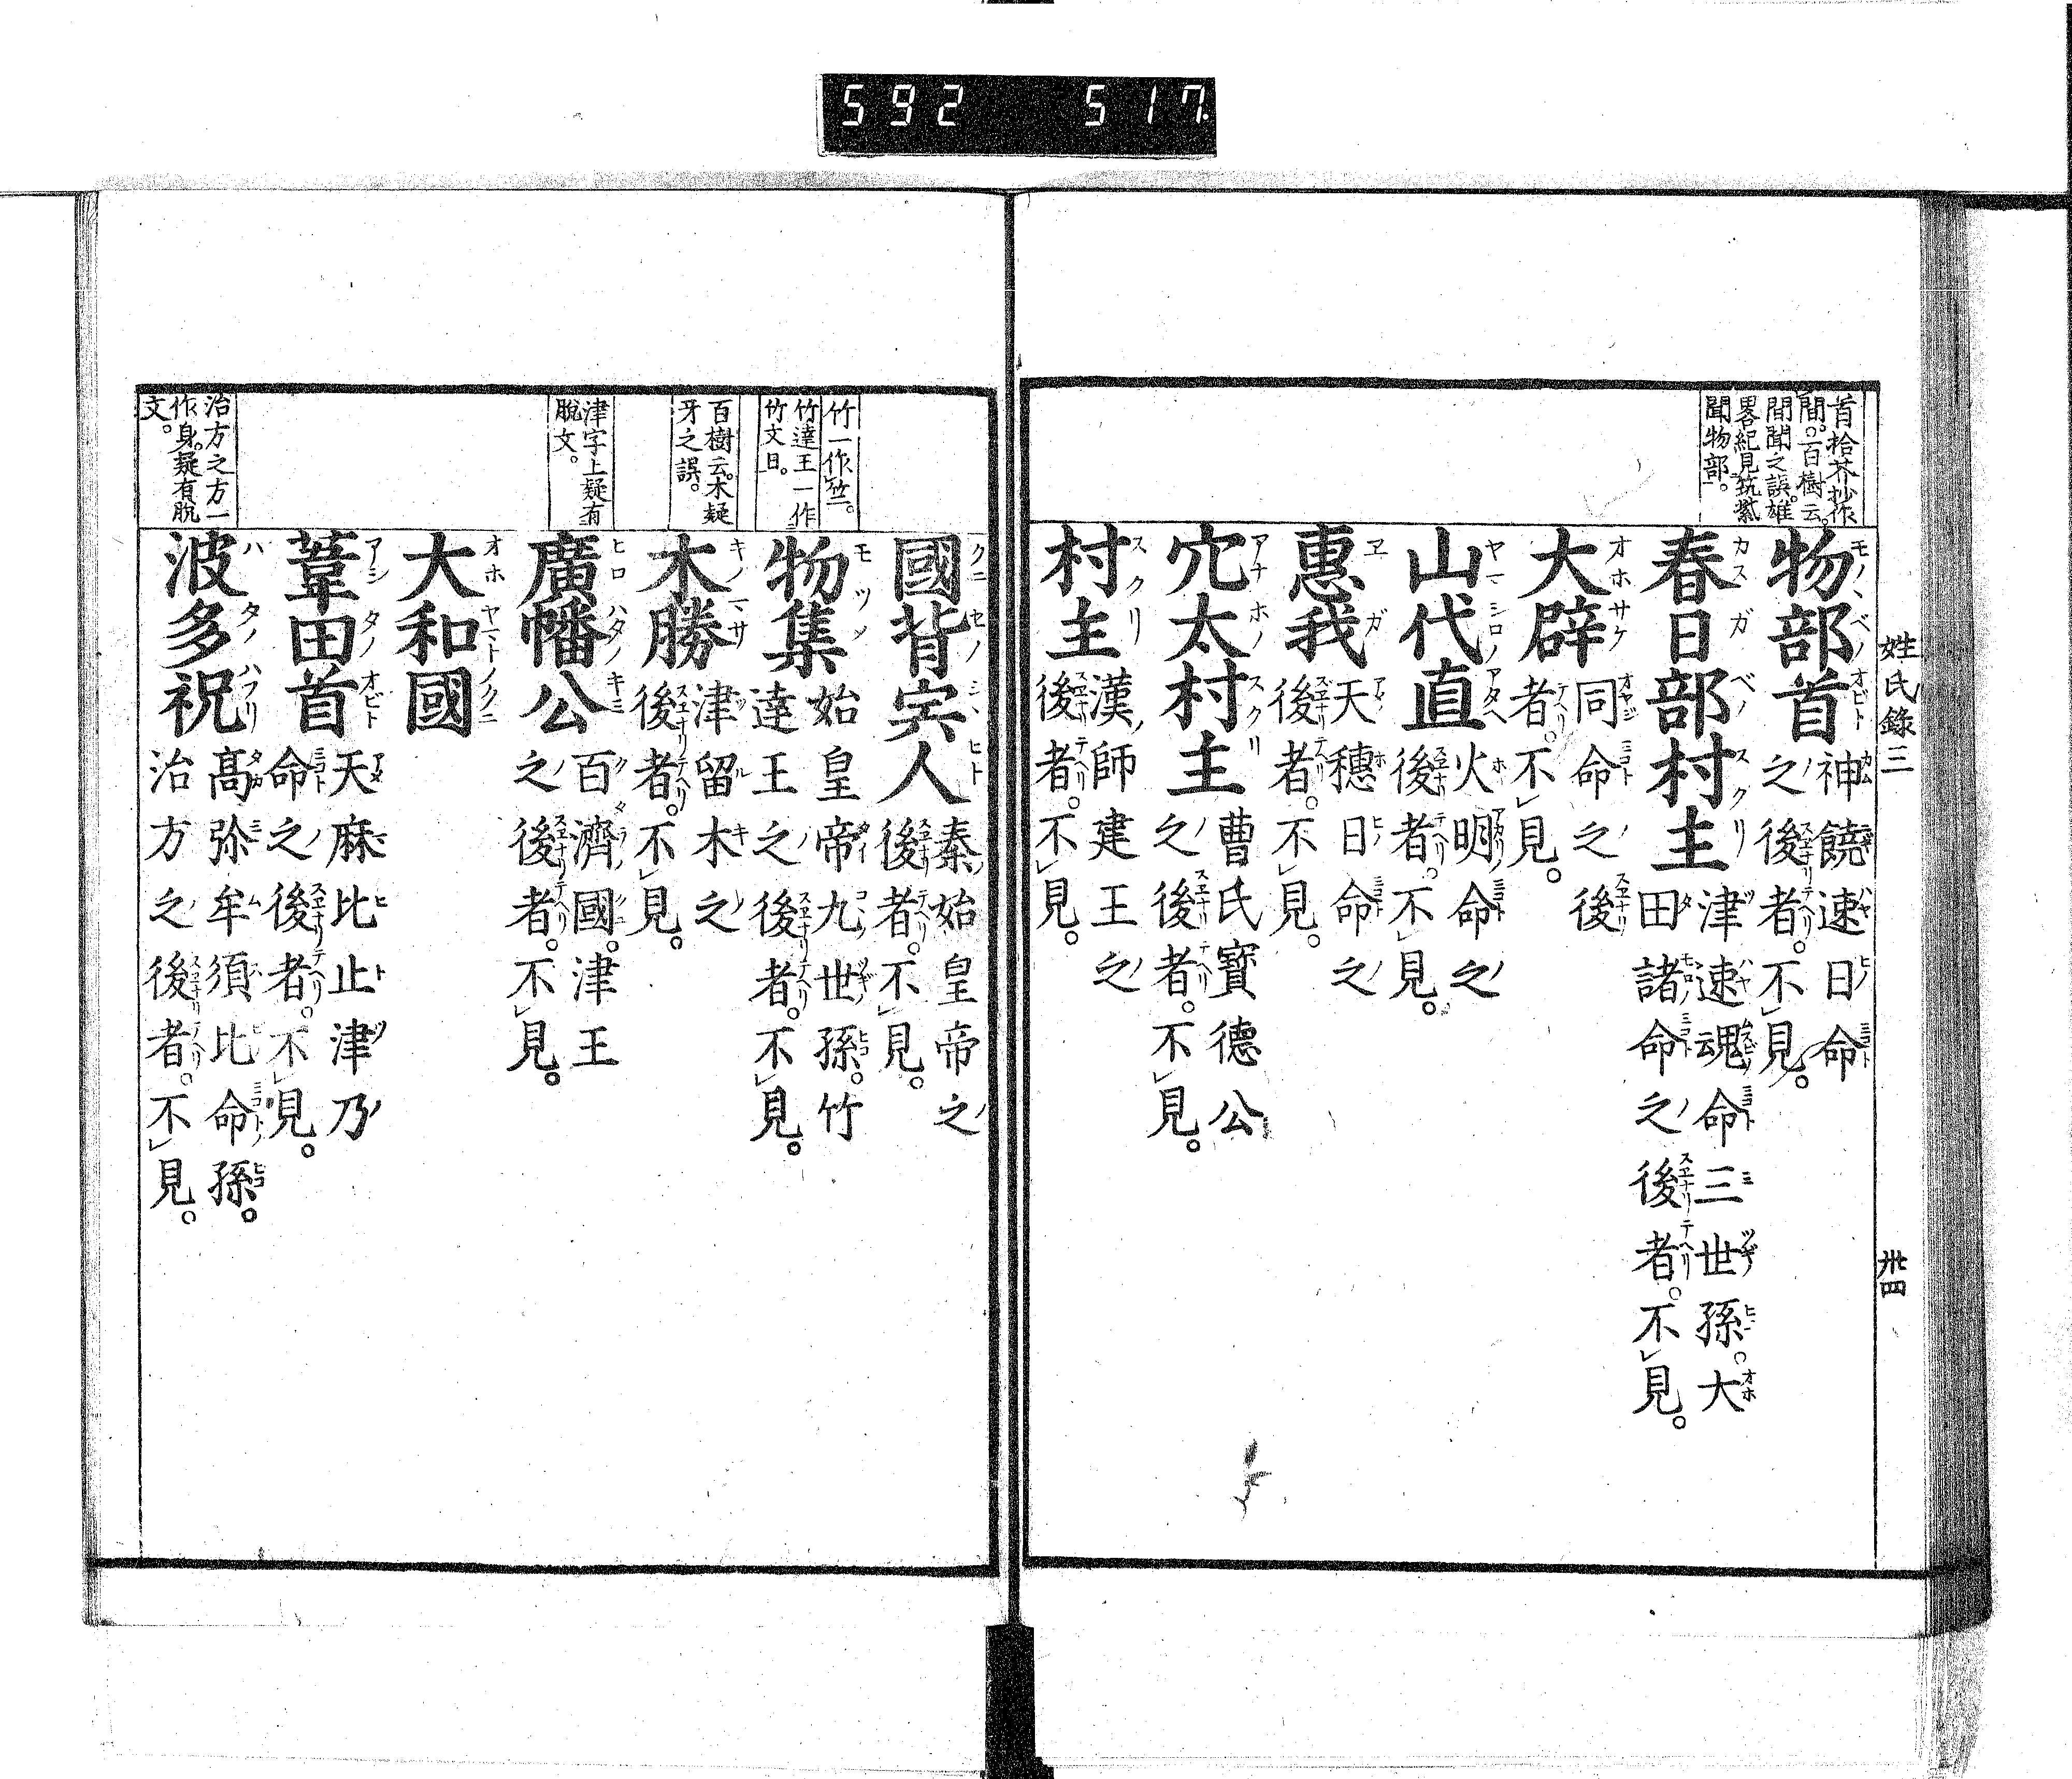 592 517
姓氏錄三
卅四
首拾芥抄作
間。百樹云。
間聞之誤。雄
畧紀見筑紫
聞物部。
物部首
神饒速日命
之後者。不見。
春日部村主
津速魂命三世孫。大
田諸命之後者。不見。
大辟
同命之後
者。不見。
山代直
火明命之
後者。不見。
惠我
天穗日命之
後者。不見。
穴太村主
曹氏寶德公
之後者。不見。
村主
漢師建王之
後者。不見。
國背宍人
秦始皇帝之
後者。不見。
竹一作竺。
竹達王一作
竹文日。
物集
始皇帝九世孫。竹
達王之後者。不見。
百樹云。木疑
牙之誤。
木勝
津留木之
後者。不見。
津字上疑有
脫文。
廣幡公
百濟國。津王
之後者。不見。
大和國
葦田首
天麻比止津乃
命之後者。不見。
治方之方一
作身。疑有脫
文。
波多祝
高弥牟須比命孫。
治方之後者。不見。